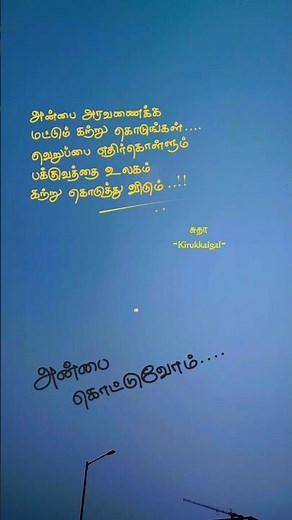 அன்பை அரவணைக்க
மட்டும் கற்று கொடுங்கள்....
வெறுப்பை எதிர்கொள்ளும்
பக்குவத்தை உலகம்
கற்று கொடுத்து விடும்..!!
சுதா
-Kirukkalgal-
அன்பை
கொட்டுவோம்....